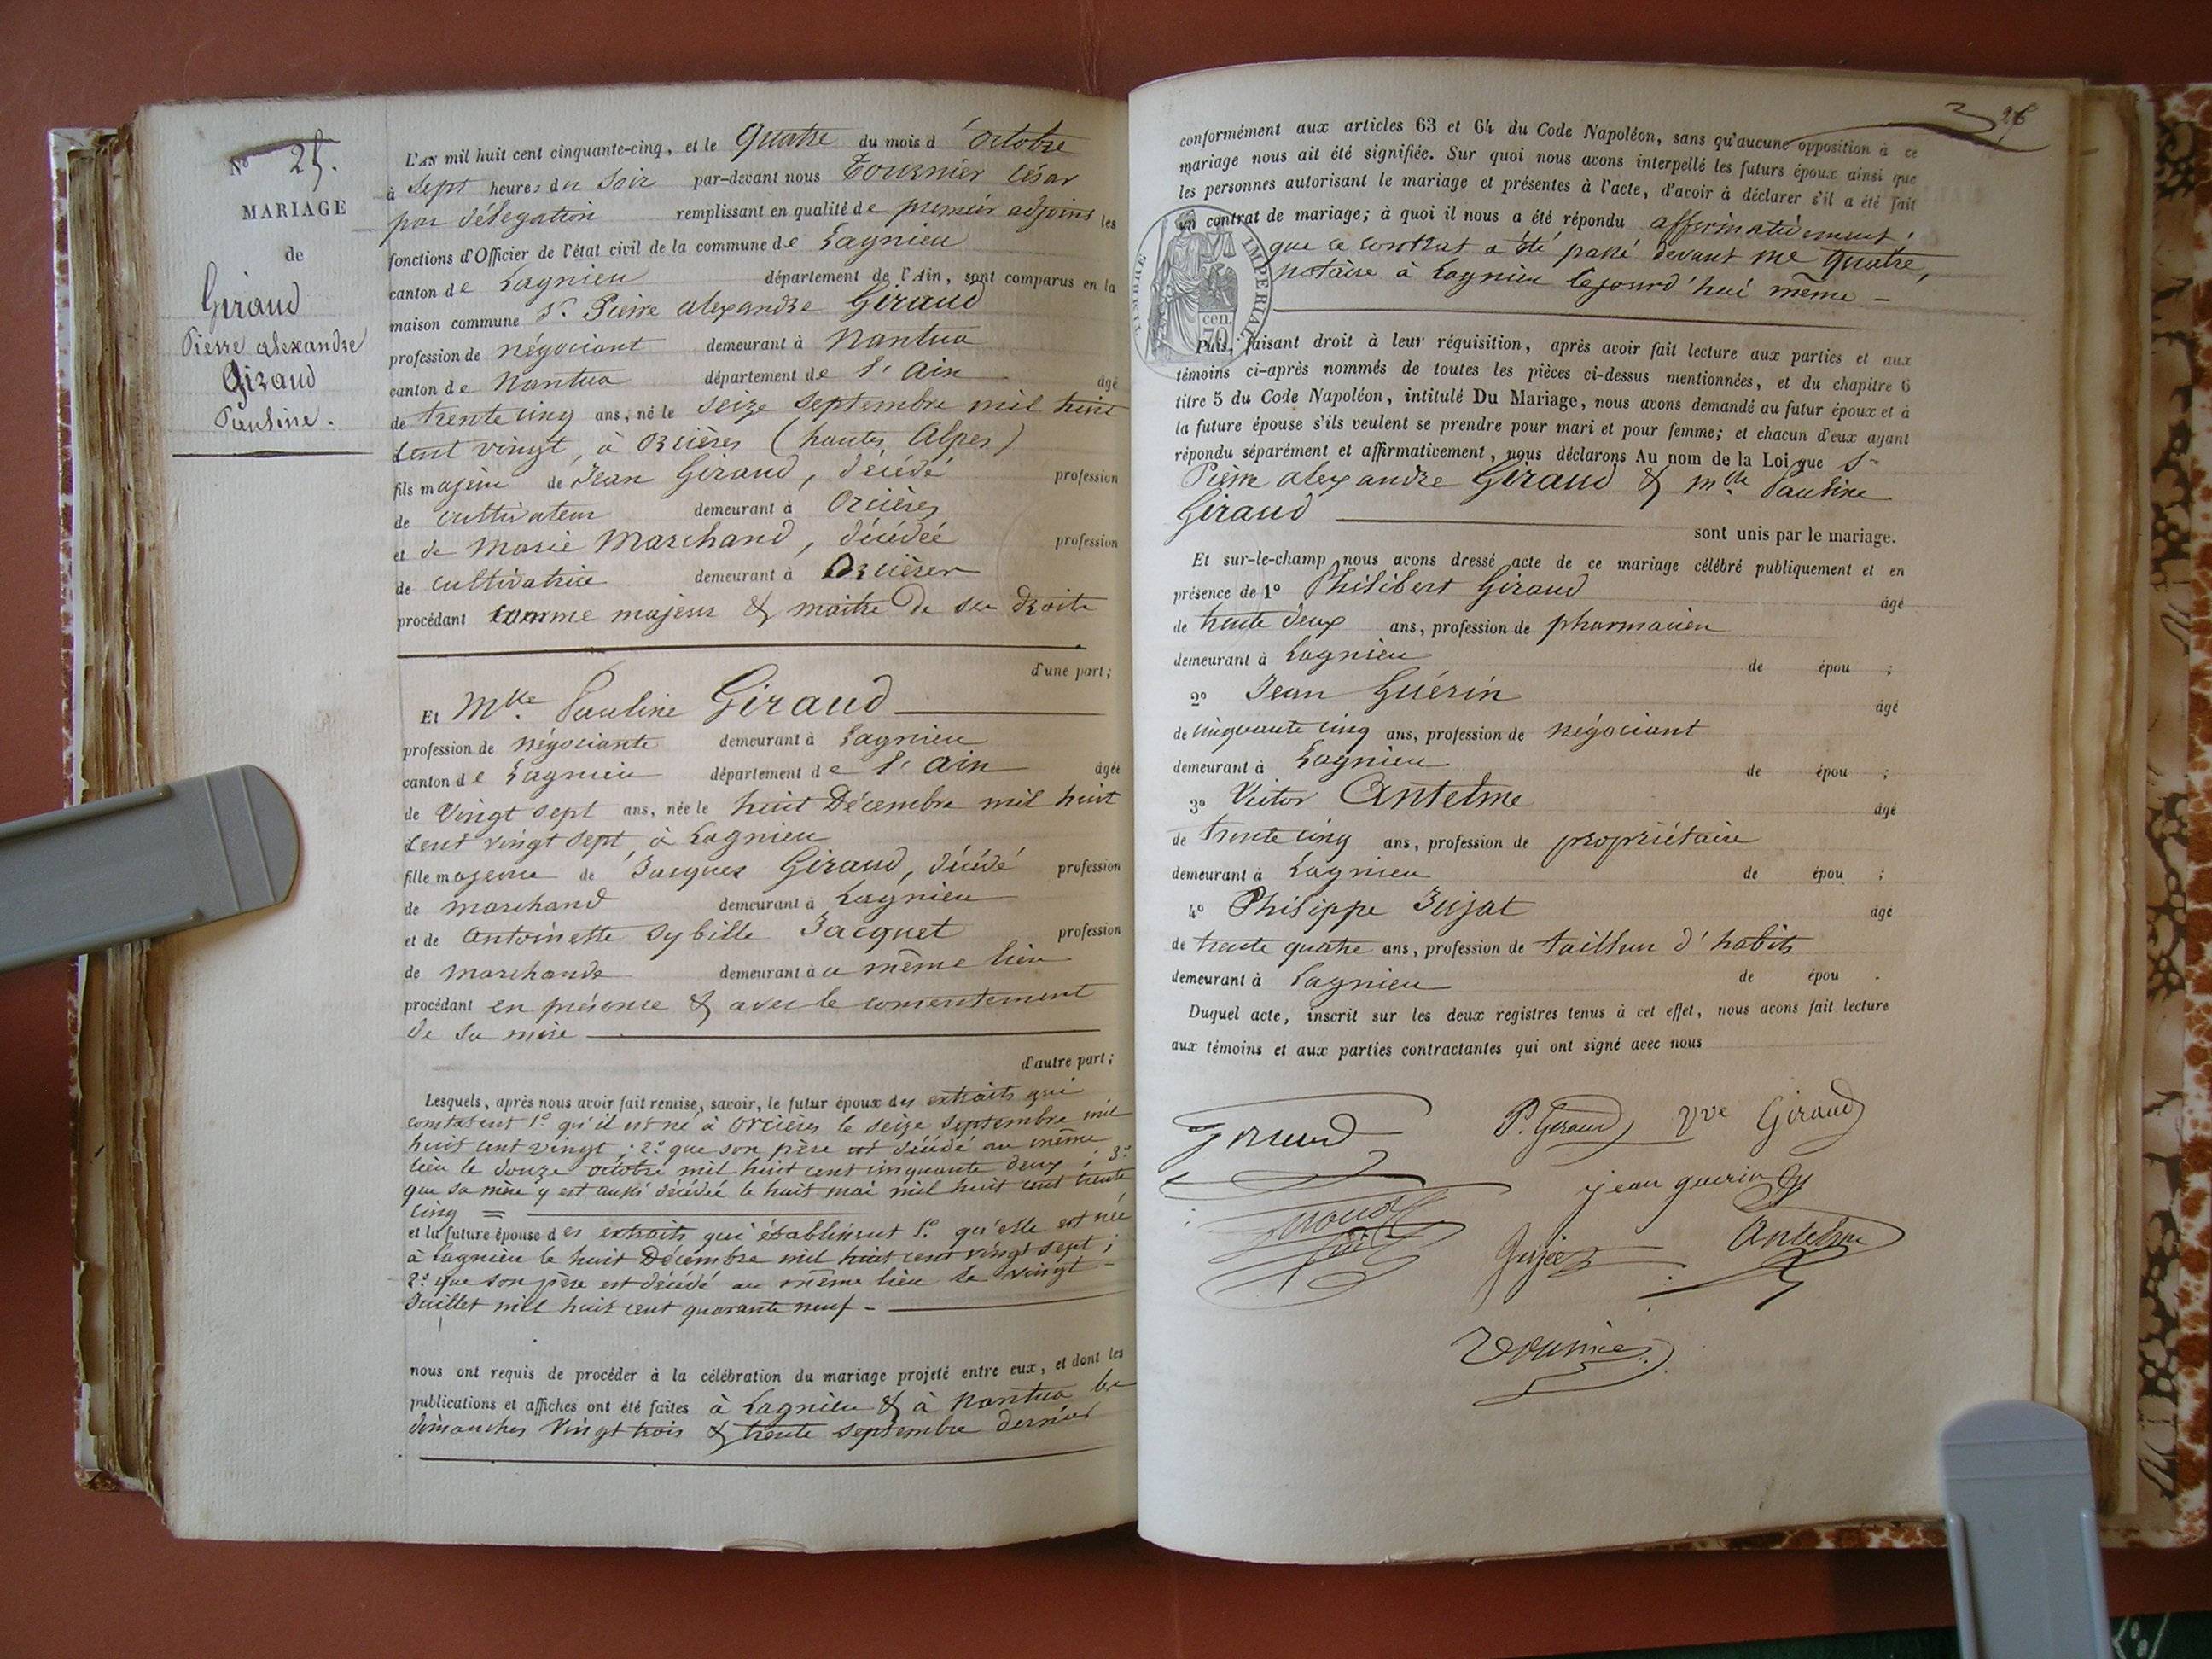 No 25.
MARIAGE
de
Giraud
Pierre alexandre
Giraud
Pauline.
L'AN mil huit cent cinquante-cinq, et le Quatre du mois d'octobre
à Sept heures du Soir par-devant nous Tournier César
par délégation remplissant en qualité de premier adjoint les
fonctions d'Officier de l'état civil de la commune de Lagnieu
canton de Lagnieu département de l'Ain, sont comparus en la
maison commune Sr. Pierre alexandre Giraud
profession de négociant demeurant à Nantua
canton de Nantua département de l'Ain âgé
de trente cinq ans, né le seize Septembre mil huit
cent vingt, à Orcières (hautes Alpes)
fils majeur de Jean Giraud, décédé profession
de cultivateur demeurant à Orcières
et de Marie Marchand, décédée profession
de cultivatrice demeurant à Orcières
procédant comme majeur & maitre de ses droits
d'une part;
Et Mlle. Pauline Giraud
profession de négociante demeurant à Lagnieu
canton de Lagnieu département de l'Ain âgée
de Vingt sept ans, née le huit Décembre mil huit
cent vingt sept, à Lagnieu
fille majeure de Jacques Giraud, décédé profession
de marchand demeurant à Lagnieu
et de antoinette Sybille Jacquet profession
de marchande demeurant au même lieu
procédant en présence & avec le consentement
de sa mère
d'autre part;
Lesquels, après nous avoir fait remise, savoir, le futur époux des extraits qui
constatent 1o. qu'il est né à Orcières le seize Septembre mil
huit cent vingt; 2o. que son père est décédé au même
lieu le douze octobre mil huit cent cinquante deux; 3o.
que sa mère y est aussi décédée le huit mai mil huit cent trente
cinq =
et la future épouse des extraits qui établissent 1o. qu'elle est née
à Lagnieu le huit Décembre mil huit cent vingt sept;
2o. que son père est décédé au même lieu le vingt-
Juillet mil huit cent quarante neuf -
nous ont requis de procéder à la célébration du mariage projeté entre eux, et dont les
publications et affiches ont été faites à Lagnieu & à Nantua les
dimanches Vingt trois & trente septembre dernier
26
conformément aux articles 63 et 64 du Code Napoléon, sans qu'aucune opposition à ce
mariage nous ait été signifiée. Sur quoi nous avons interpellé les futurs époux ainsi que
les personnes autorisant le mariage et présentes à l'acte, d'avoir à déclarer s'il a été fait
un contrat de mariage; à quoi il nous a été répondu affirmativement,
que ce contrat a été passé devant me Quatre,
notaire à Lagnieu cejourd'hui même -
TIMBRE IMPERIAL
cen.
70
Puis, faisant droit à leur réquisition, après avoir fait lecture aux parties et aux
témoins ci-après nommés de toutes les pièces ci-dessus mentionnées, et du chapitre 6
titre 5 du Code Napoléon, intitulé Du Mariage, nous avons demandé au futur époux et à
la future épouse s'ils veulent se prendre pour mari et pour femme; et chacun d'eux ayant
répondu séparément et affirmativement, nous déclarons Au nom de la Loi que Sr
Pierre alexandre Giraud & mlle Pauline
Giraud
sont unis par le mariage.
Et sur-le-champ nous avons dressé acte de ce mariage célébré publiquement et en
présence de 1o Philibert Giraud âgé
de trente deux ans, profession de pharmacien
demeurant à Lagnieu de épou ;
2o Jean Guérin âgé
de cinquante cinq ans, profession de négociant
demeurant à Lagnieu de épou ;
3o Victor Antelme âgé
de trente cinq ans, profession de propriétaire
demeurant à Lagnieu de épou ;
4o Philippe Jujat âgé
de trente quatre ans, profession de tailleur d'habits
demeurant à Lagnieu de épou .
Duquel acte, inscrit sur les deux registres tenus à cet effet, nous avons fait lecture
aux témoins et aux parties contractantes qui ont signé avec nous
Giraud P. Giraud Vve Giraud
jean guerin
Jujat Antelme
Tournier